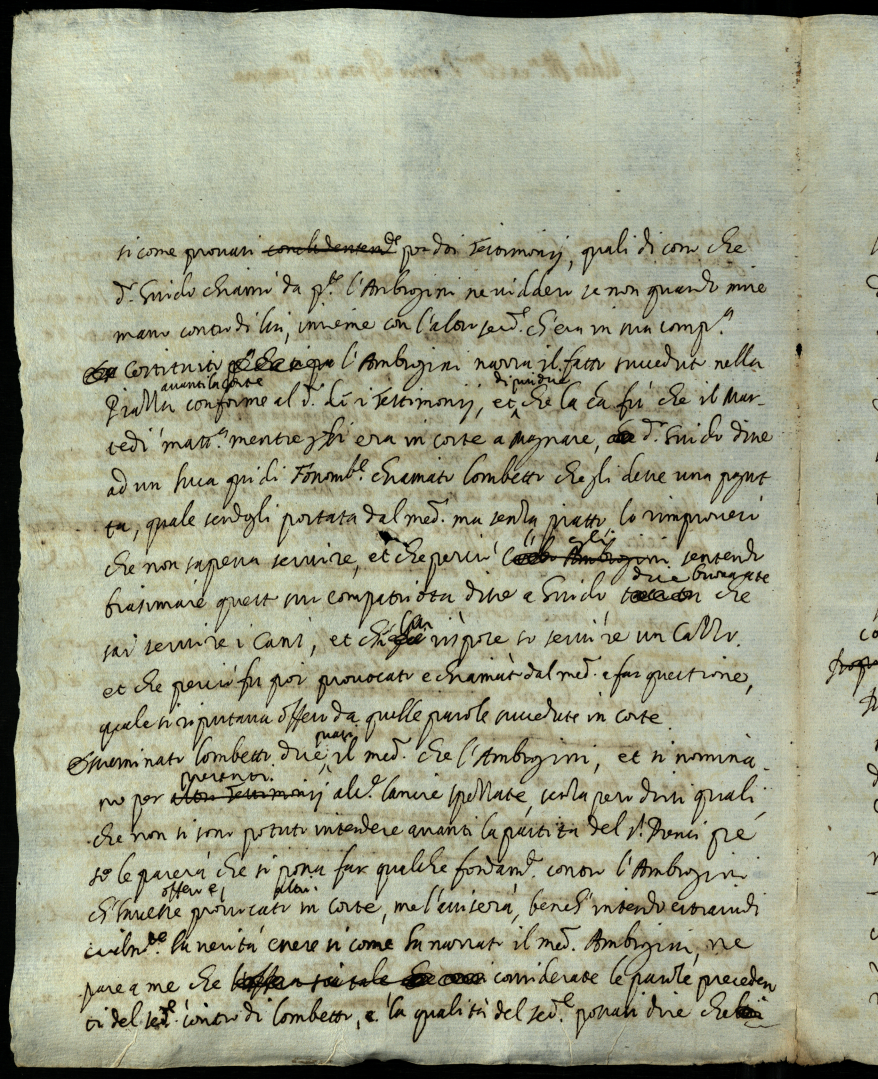 si come provati per doi Testimonij, quali dicono che
d.º Guido chiamò da p.te l'Ambrogini ne viddero se non quando mise
mano contro di lui, insieme con l'altro ch'era in sua comp.a
Costituito l'Ambrogini narra il fatto succeduto nella
Piazza avanti la corte conforme al d.º di i Testimonij, et di più dice che la ca fù che il Mar-
tedi matt.a mentre si era in corte a magnare, d.º Guido disse
ad un suo qui di chiamato Lombetto che gli desse una
ta, quale portata dal med.º ma senza piatto lo rimproverò
che non sapeva servire, et che perciò egli sentendo
biasimare questo suo compatriota disse a Guido che
sai servire i Cani, et rispose so servire un Cazzo.
et che perciò fu poi provocato e chiamato dal med.º a far questione,
quale si riputava offeso da quelle parole succedute in corte
Esaminato Lombetto dice quasi il med.º che l'Ambrogini, et si nomina-
no per presenti alc.e lancie spezzate,
che non si sono potuti intendere avanti la partita del
se le parerà che si possa far qualche fondam.to contro l'Ambrogini
ch'havesse offeso e, provocato altri in corte, me l'aviserà, bench'intendo
la verità essere si come ha narrato il med.º Ambrogini, ne
pare a me che considerate le parole preceden
ti del contro di Lombetto, e la qualità del possati dire che